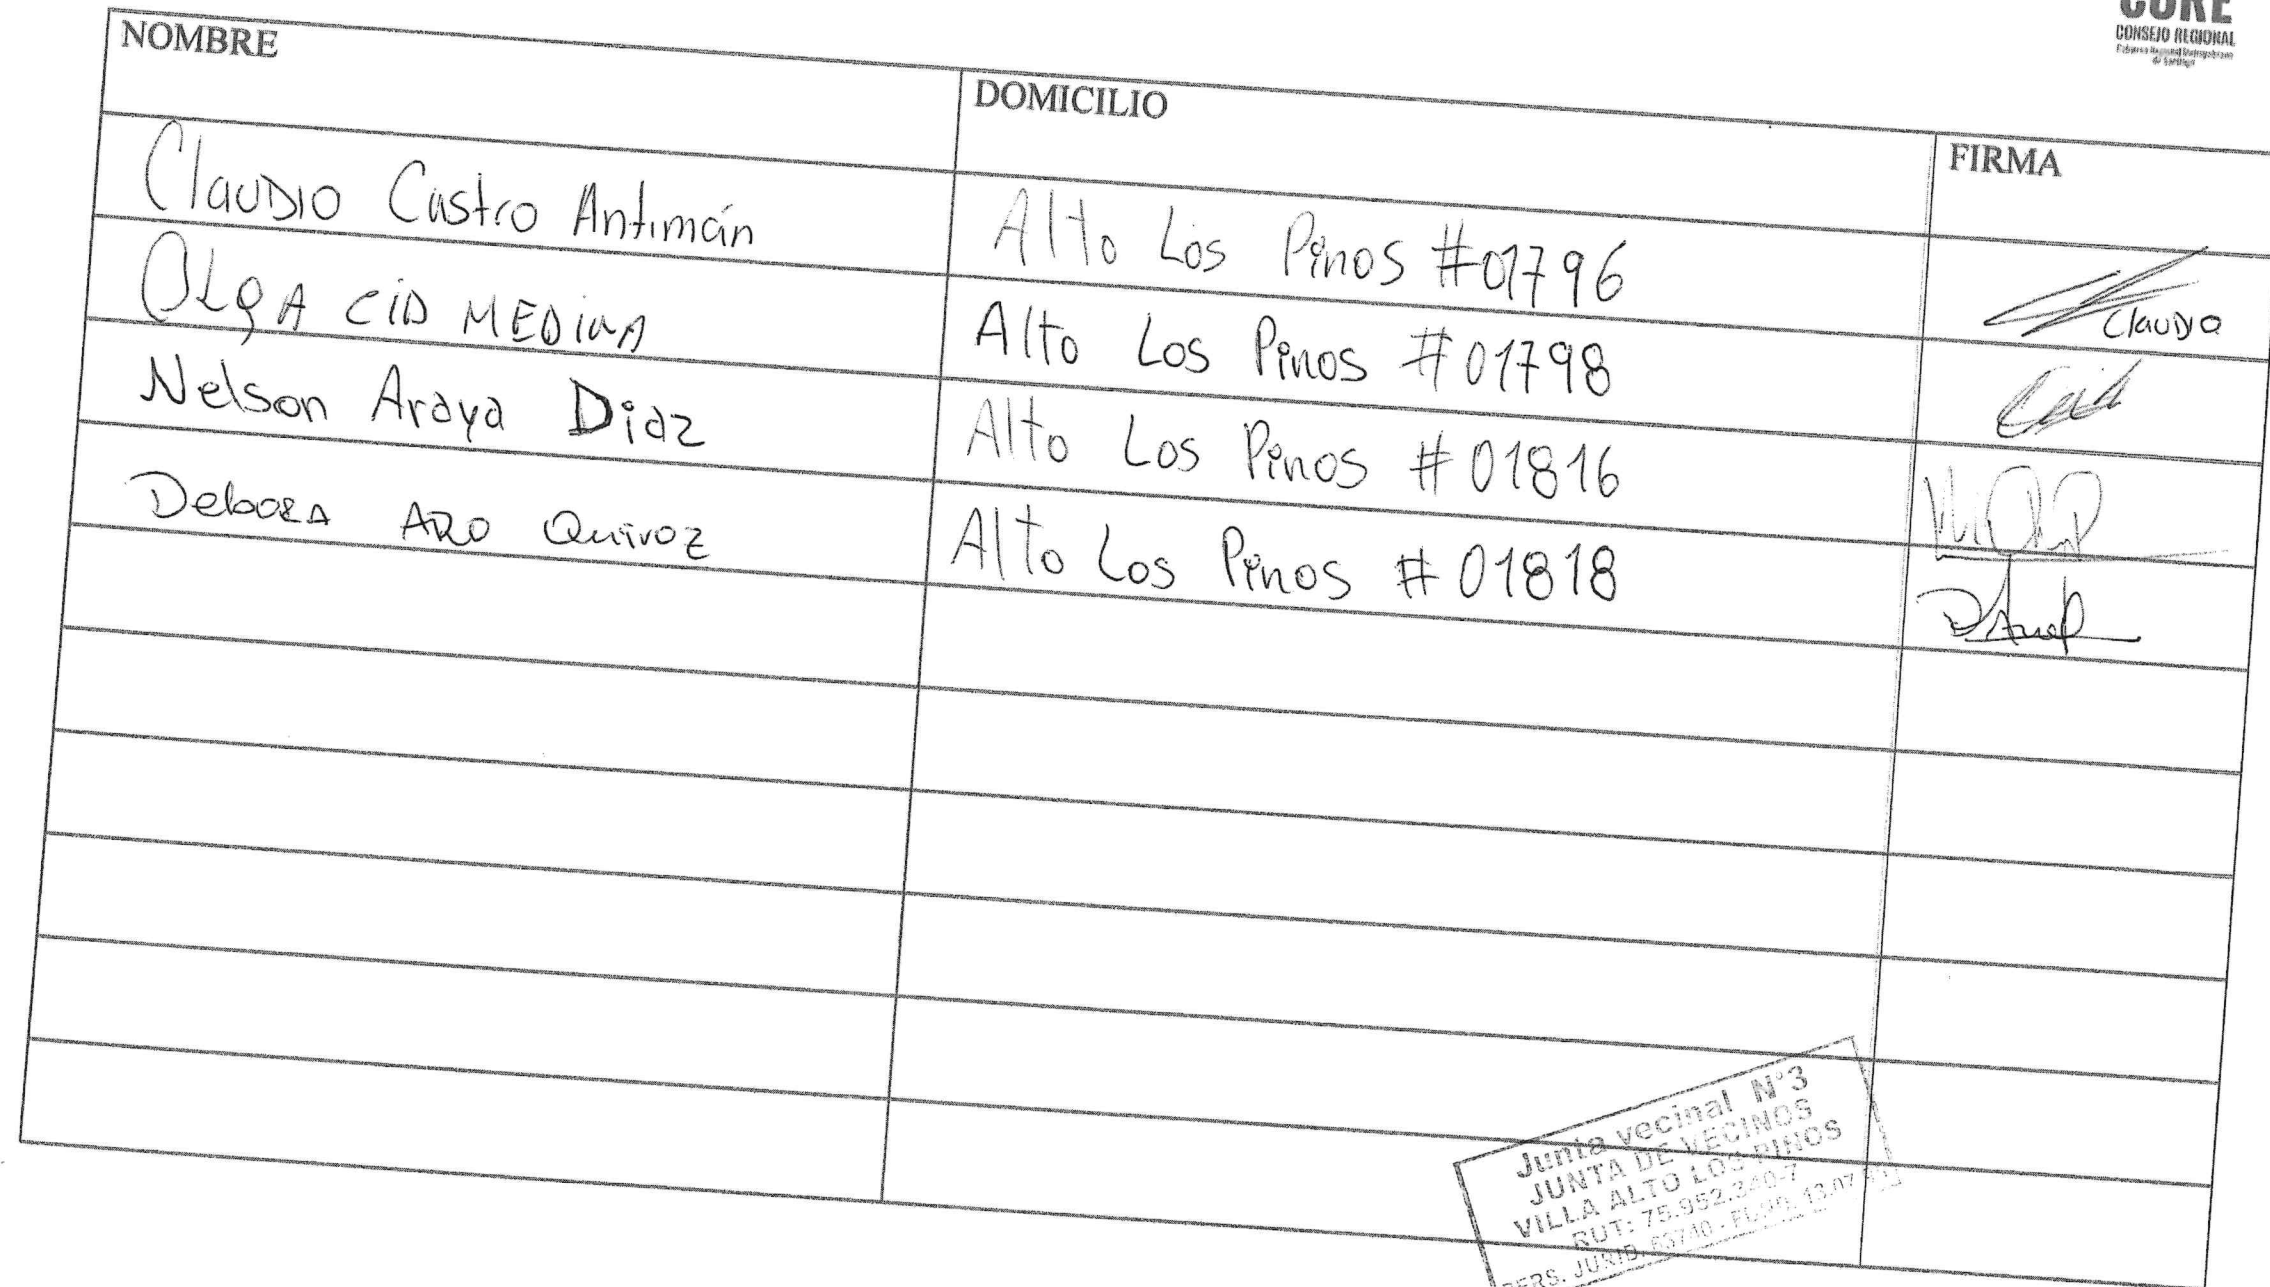 CORE
CONSEJO REGIONAL
NOMBRE DOMICILIO FIRMA
Claudio Castro Antimán Alto Los Pinos #01796 Claudio
OLGA CID MEDINA Alto Los Pinos #01798
Nelson Araya Diaz Alto Los Pinos #01816
Debora ARO Quiroz Alto Los Pinos #01818
Junta vecinal N°3
JUNTA DE VECINOS
VILLA ALTO LOS PINOS
RUT: 75.952.340-7
PERS. JURID.